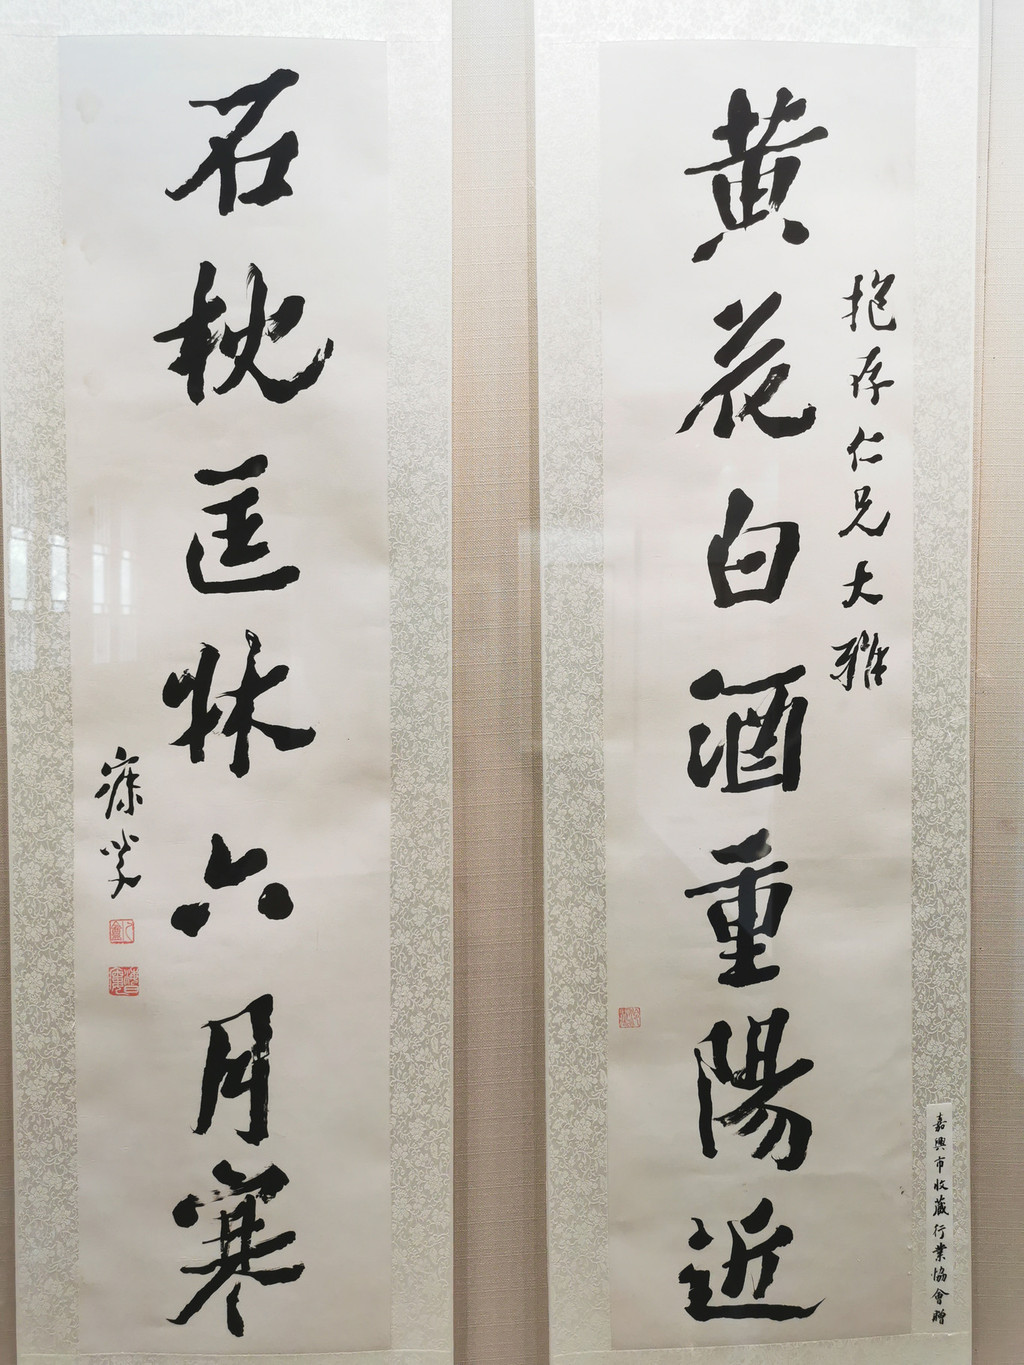 抱存仁兄大雅
黄花白酒重陽近
石枕匡牀六月寒
寐叟
嘉興市收藏行業協會贈